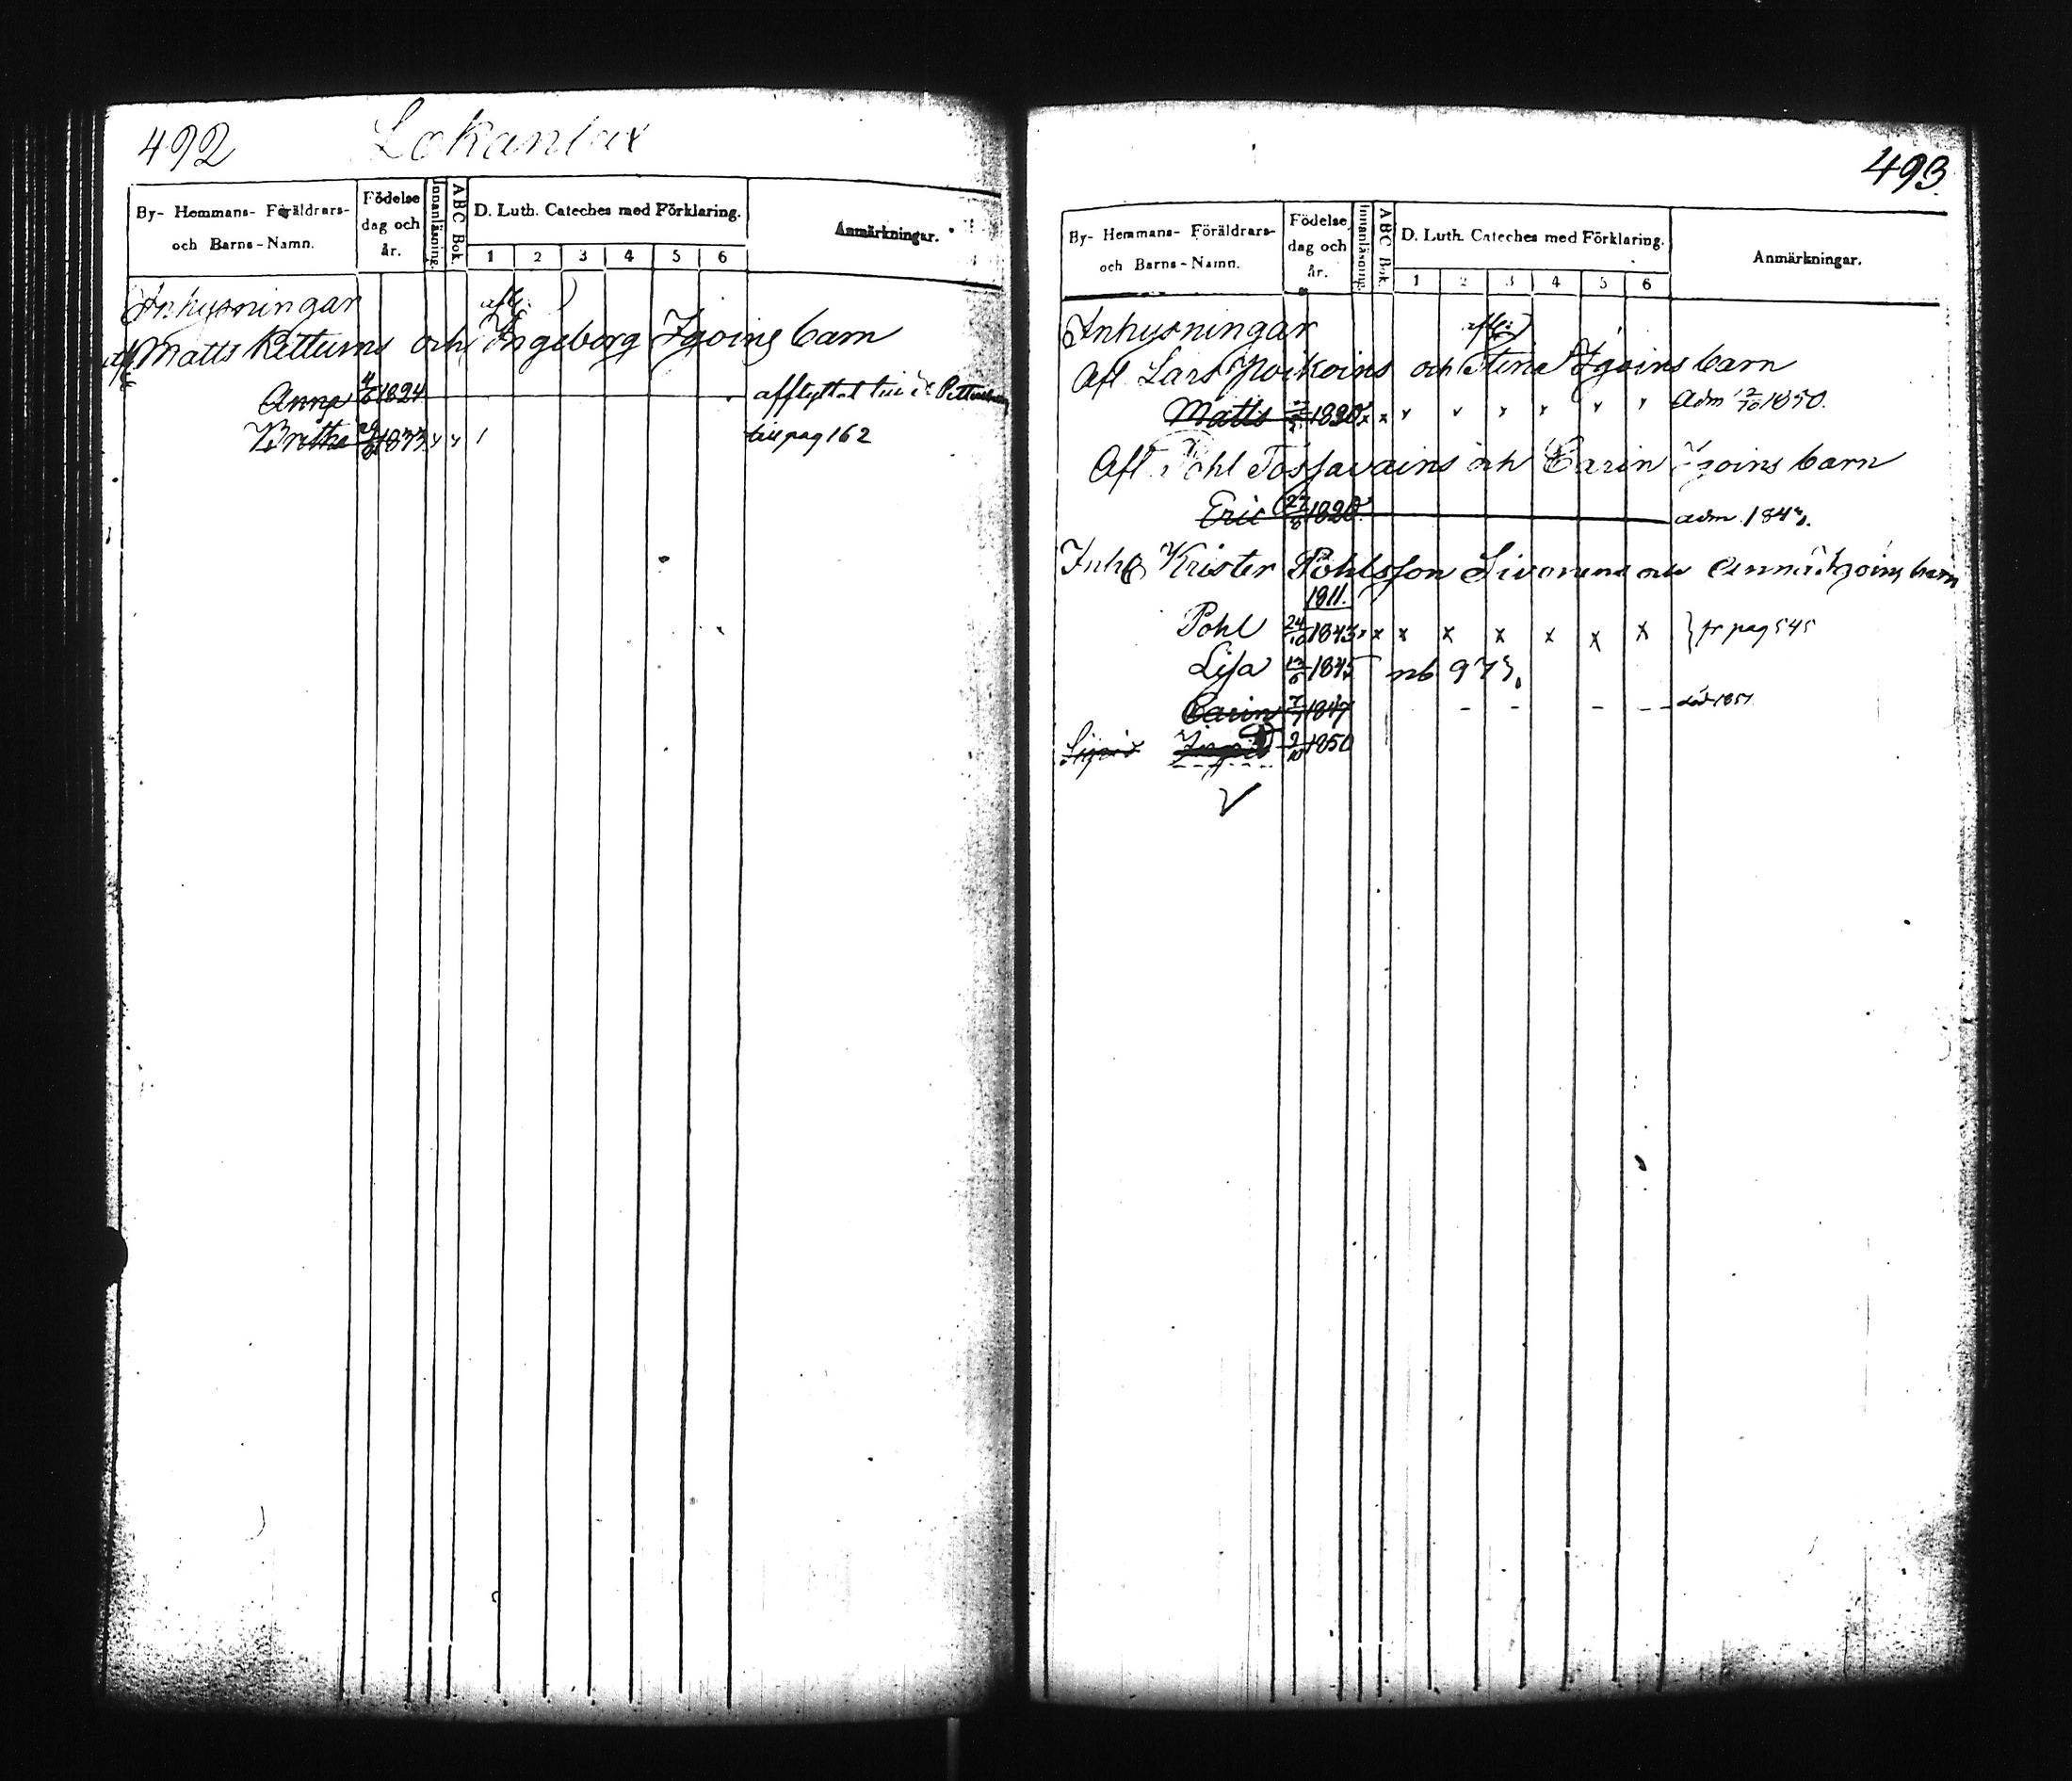 492 Lokanlax
By- Hemmans- Föräldrars- och Barns-Namn.
Födelse dag och år.
Innanläsning.
ABC Bok.
D. Luth. Cateches med Förklaring.
1 2 3 4 5 6
Anmärkningar.
Inhysningar afl:
afl Matts Kettuins och Ingeborg Igoins barn
Anna 1824 afflyttat till St Pettersburg
Britha 1833 x x 1 till pag 162
493
By- Hemmans- Föräldrars- och Barns-Namn.
Födelse dag och år.
Innanläsning.
ABC Bok.
D. Luth. Cateches med Förklaring.
1 2 3 4 5 6
Anmärkningar.
Inhysningar afl:
Afl Lars och Stina Igoins barn
Matts x x x x x x x x Adm 1850.
Afl Pohl Tossavains och Carin Igoins barn
Eric adm. 184
Inh Krister Pohlsson och Anna Igoins barn
1811.
Pohl 24/10 1843 x x x x x x x x } fr pag 545
Lisa 1845 nb 973
Carin 7/7 1847 död 1851
Sigrid 9/10 1850